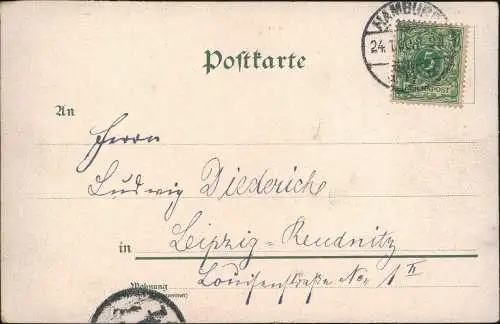 HAMBURG
24.1.00
5
REICHSPOST
Postkarte
An
Herrn
Ludwig Diederichs
in Leipzig-Reudnitz
Wohnung
Louisenstraße No. 1 II